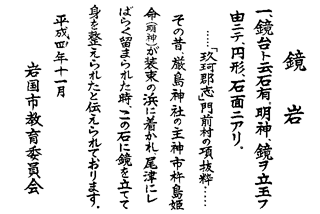 鏡岩
一、鏡台ト云石有、明神、鏡ヲ立玉フ
由ニテ、円形、石面ニアリ。
……「玖珂郡志」門前村の項抜粋……
その昔、厳島神社の主神市杵島姫
命（明神）が装束の浜に着かれ、尾津にし
ばらく留まられた時、この石に鏡を立てて
身を整えられたと伝えられております。
平成四年十一月
岩国市教育委員会